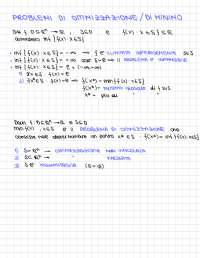 PROBLEMI DI OTTIMIZZAZIONE / DI MINIMO
Dati f: D ⊆ ℝⁿ → ℝ , S ⊆ D e f(x) : x ∈ S ⊆ ℝ
consideriamo inf { f(x) : x ∈ S }
• inf { f(x) : x ∈ S } = -∞ → f è illimitata inferiormente su S
• inf { f(x) : x ∈ S } = +∞ → S = ∅ → il problema è impossibile
• inf { f(x) : x ∈ S } = ∈ (-∞, +∞)
1)
2) f(x*) = min { f(x) : x ∈ S }
f(x*) = minimo di f su S
x* =
Dati f: D ⊆ ℝⁿ → ℝ e S ⊆ D
min f(x) x ∈ S è il PROBLEMA DI OTTIMIZZAZIONE che
consiste nel determinare un punto x* ∈ S : f(x*) = inf { f(x) : x ∈ S }
1) S = ℝⁿ → OTTIMIZZAZIONE NON VINCOLATA
2) S ⊂ ℝⁿ → " VINCOLATA
3) (S = ∅)